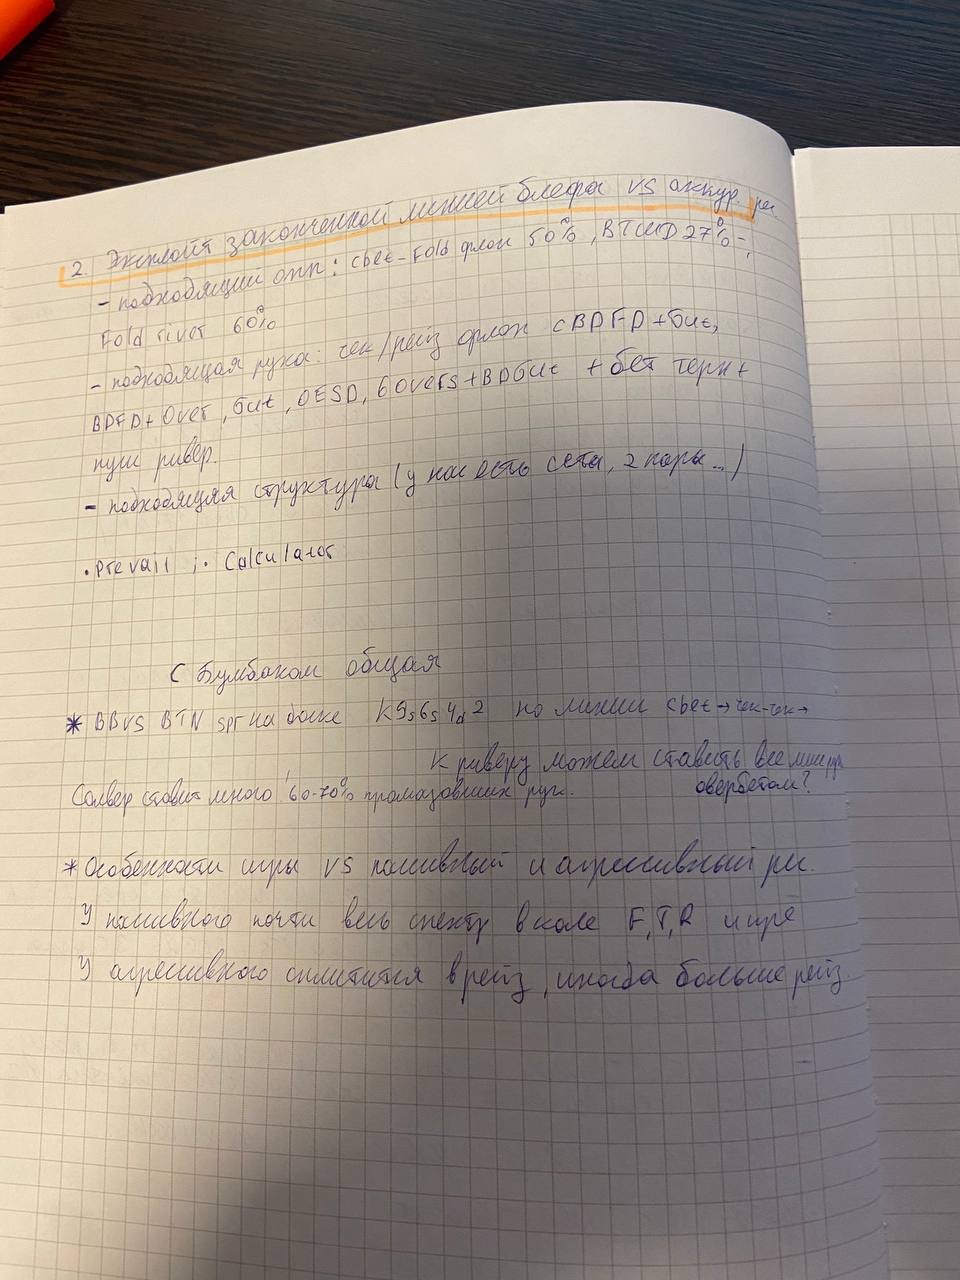 2. Эксплойт законченной линией блефа vs аккур. рег
- подходящий опп: cbet-Fold флоп 50%, ВТ 27%-,
Fold river 60%
- подходящая рука: чек/рейз флоп с BDFD+Gut,
BDFD+Over, Gut, OESD, 6 overs+BDGut + бет терн +
пуш ривер.
- подходящая структура (у нас есть сеты, 2 пары...)
• Prevail ; • Calculator
С Бумбаком общая
* BB vs BTN spr на боке K 9s 6s 4d 2 по линии cbet → чек-чек →
к риверу можем ставить все
овербетом?
Солвер ставит много, 60-70% промазавших рук.
* Особенности игры vs пассивный и агрессивный рег.
У пассивного почти весь спектр в коле F, T, R
У агрессивного сплитится в рейз, иногда больше рейз.